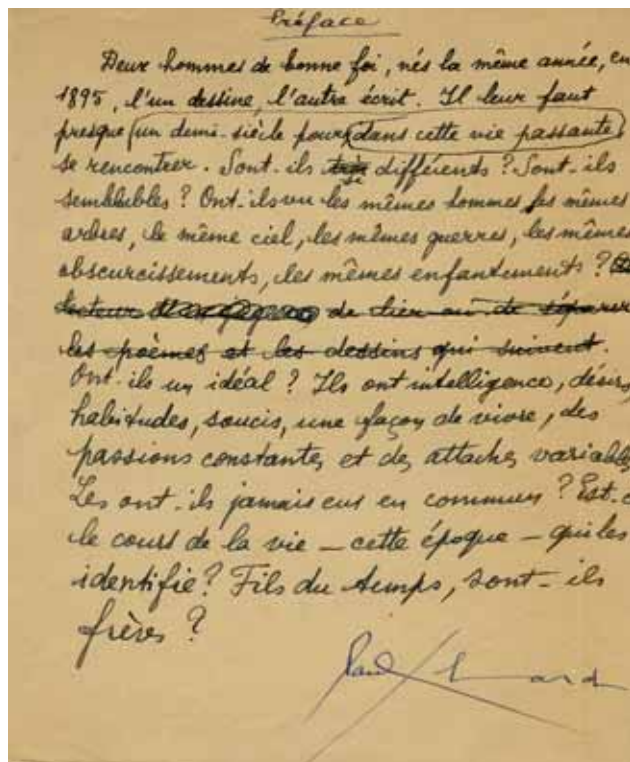 Préface
Deux hommes de bonne foi, nés la même année, en
1895, l'un dessine, l'autre écrit. Il leur faut
presque un demi-siècle pour dans cette vie passante
se rencontrer. Sont-ils très si différents ? Sont-ils
semblables ? Ont-ils vu les mêmes hommes, les mêmes
arbres, le même ciel, les mêmes guerres, les mêmes
obscurcissements, les mêmes enfantements ?
lecteur de lier ou de séparer
les poèmes et les dessins qui suivent.
Ont-ils un idéal ? Ils ont intelligence, désirs,
habitudes, soucis, une façon de vivre, des
passions constantes et des attaches variables
Les ont-ils jamais eus en commun ? Est-c
le cours de la vie — cette époque — qui les
identifie ? Fils du temps, sont-ils
frères ?
Paul Eluard